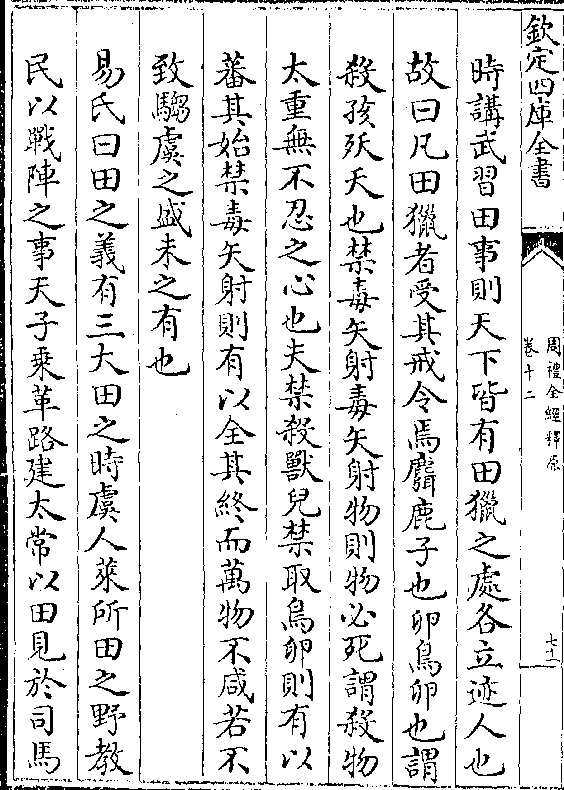 欽定四庫全書
周禮全經釋原
卷十二
時講武習田事則天下皆有田獵之處各立迹人也
故曰凡田獵者受其戒令焉麛鹿子也卵鳥卵也謂
殺孩殀夭也禁毒矢射毒矢射物則物必死謂殺物
太重無不忍之心也夫禁殺獸兒禁取鳥卵則有以
蕃其始禁毒矢射則有以全其終而萬物不咸若不
致騶虞之盛未之有也
易氏曰田之義有三大田之時虞人萊所田之野教
民以戰陣之事天子乗革路建太常以田見於司馬